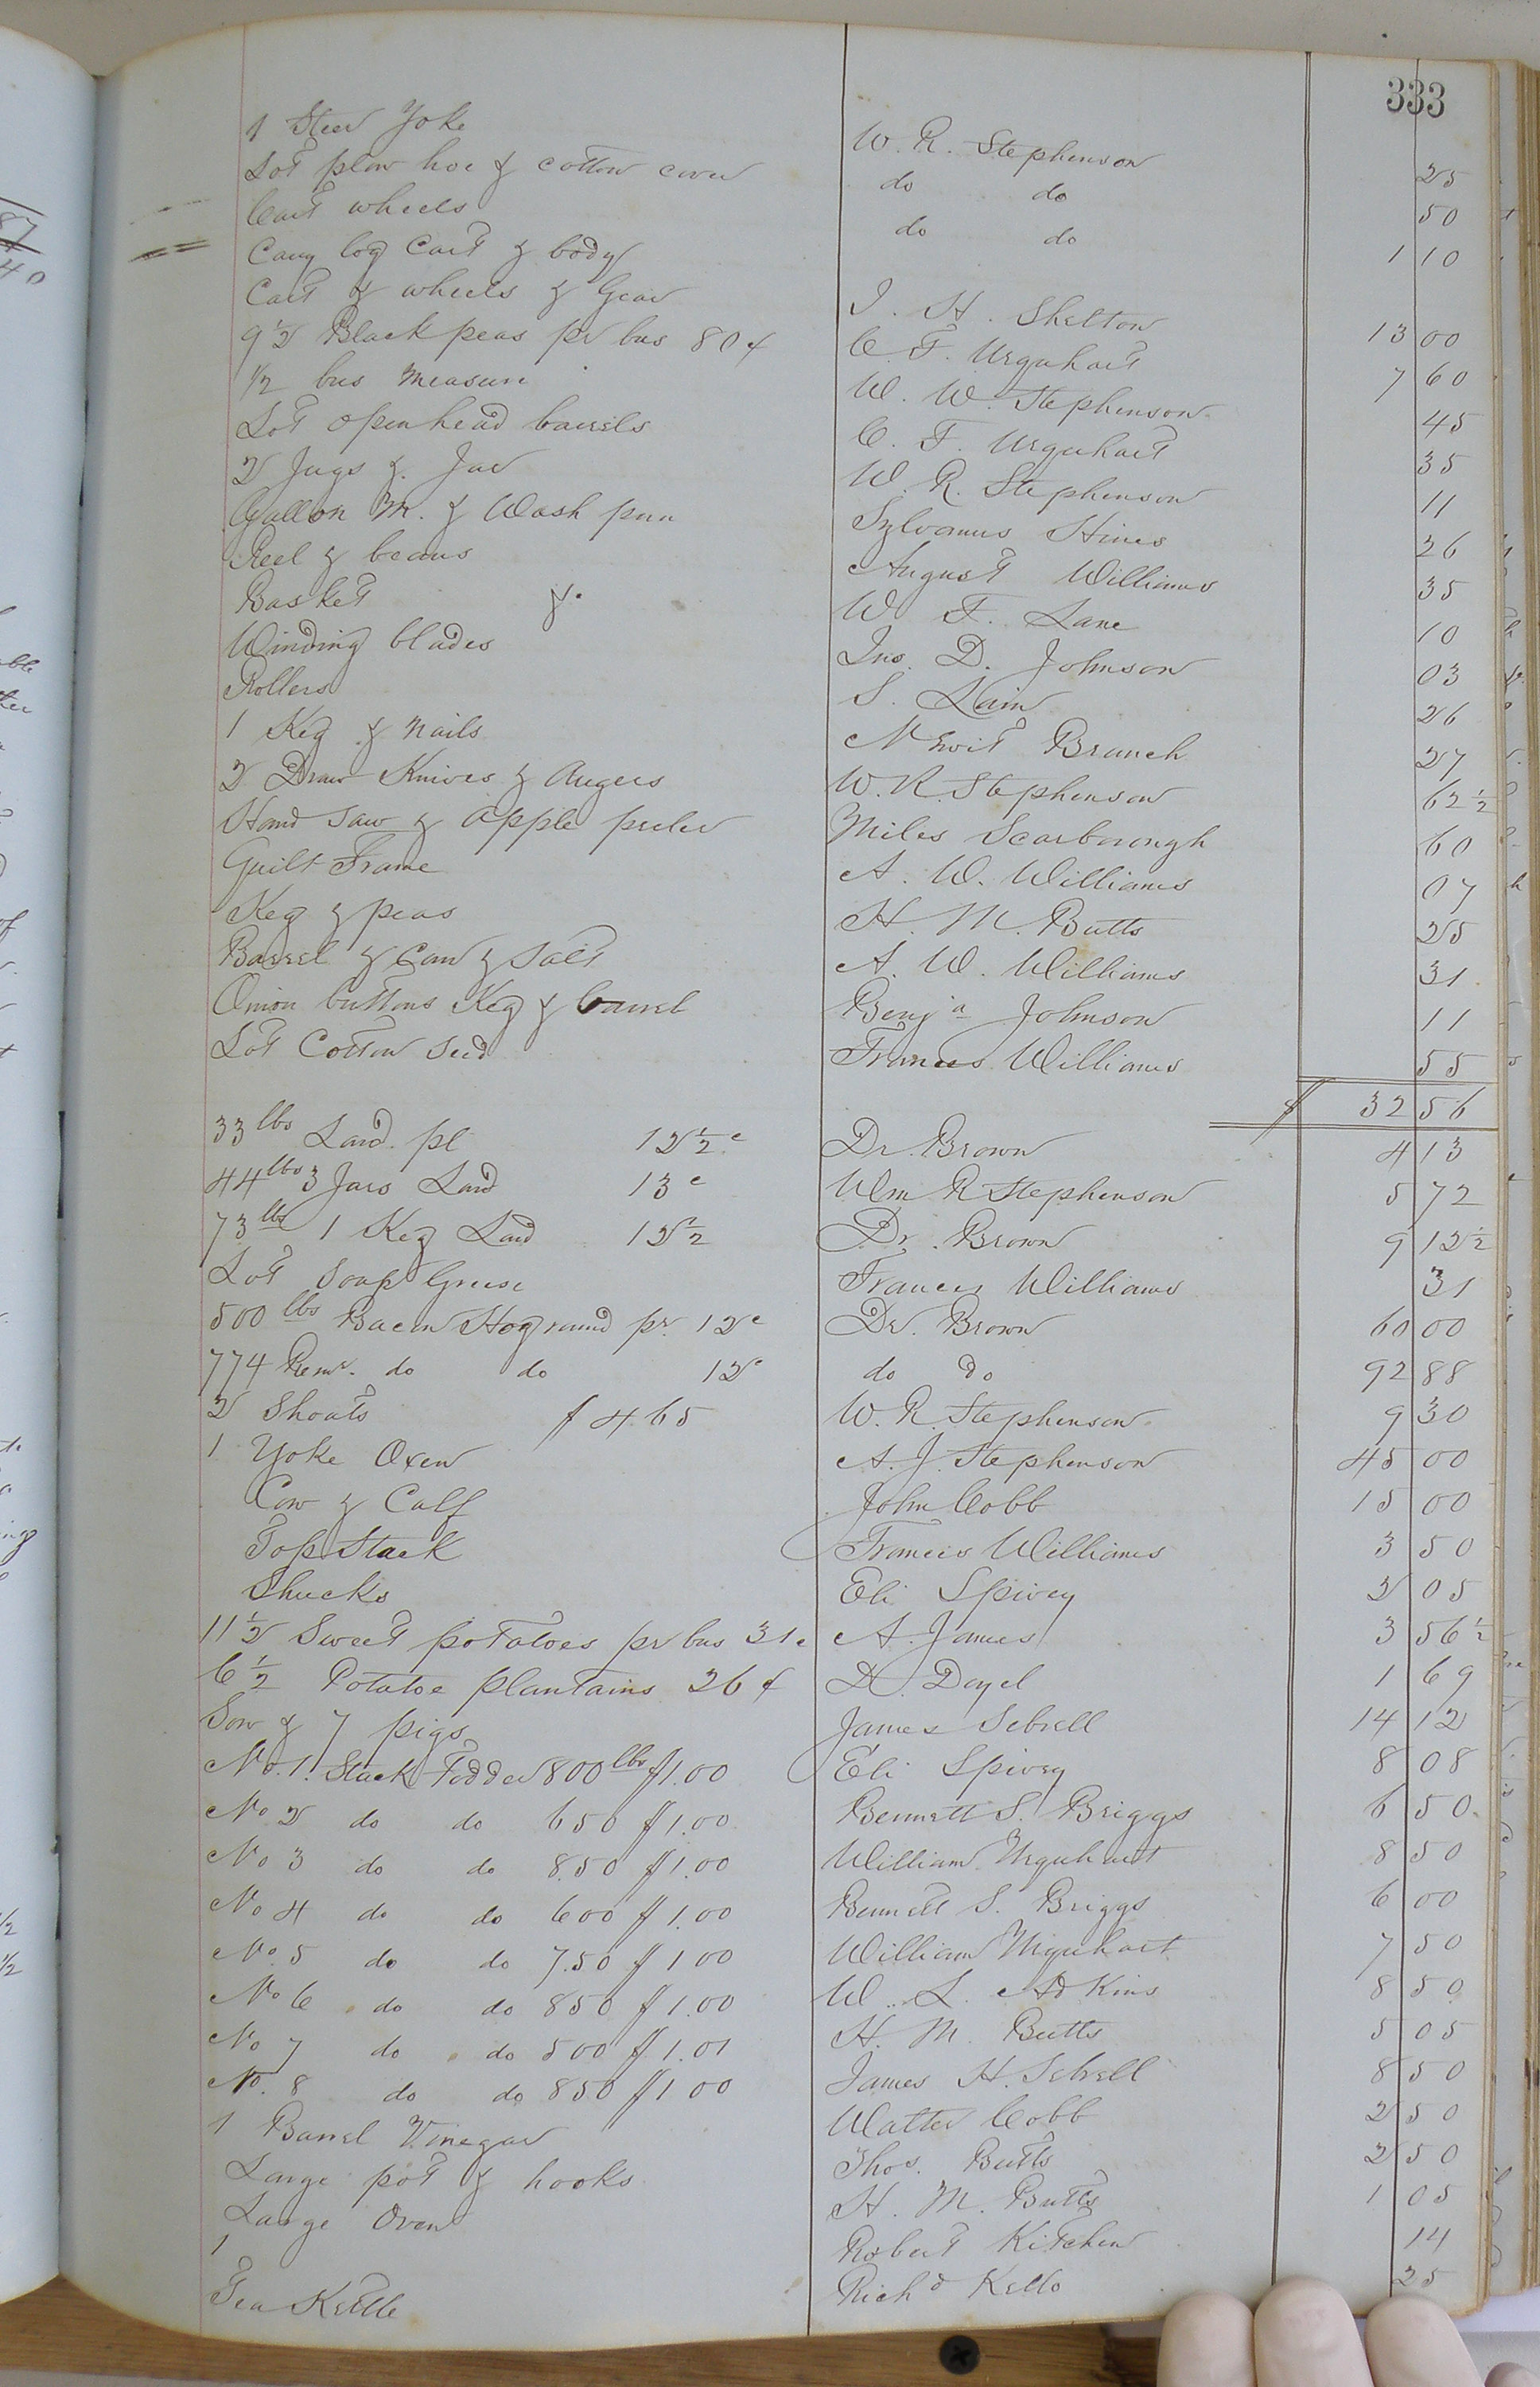 333
1 Steer Yoke W. R. Stephenson 25
Lot plow hoe & cotton cover do do 50
Cart wheels do do 1 10
Cary log Cart & body
Cart & wheels & Gear J. H. Shelton 13 00
9 1/2 Black peas pr bus 80 ¢ C. F. Urquhart 7 60
1/2 bus Measure W. W. Stephenson 45
Lot open head barrels C. F. Urquhart 35
2 Jugs & Jar W. R. Stephenson 11
Gallon M. & Wash pan Sylvanus Hines 26
Reel & beams August Williams 35
Basket &. W F. Lane 10
Winding blades Jno. D. Johnson 03
Rollers S. Lain 26
1 Keg & Nails Newit Branch 27
2 Draw Knives & Augers W. R. Stephenson 62 1/2
Hand Saw & Apple peeler Miles Scarborough 60
Quilt Frame A. W. Williams 07
Keg & peas H. M. Butts 25
Barrel & Can & Salt A. W. Williams 31
Onion buttons Keg & barrel Benja Johnson 11
Lot Cotton Seed Frances Williams 55
$ 32 56
33 lbs Lard pr 12 1/2 c Dr. Brown 4 13
44 lbs 3 Jars Lard 13 c Wm R Stephenson 5 72
73 lbs 1 Keg Lard 12 1/2 Dr. Brown 9 12 1/2
Lot Soap Grease Frances Williams 31
500 lbs Bacon Hog round pr. 12 c Dr. Brown 60 00
774 Remr. do do 12 c do do 92 88
2 Shoats $ 4.65 W. R. Stephenson 9 30
1 Yoke Oxen A. J. Stephenson 45 00
Cow & Calf John Cobb 15 00
Top Stack Francis Williams 3 50
Shucks Eli Spivey 2 05
11 1/2 Sweet potatoes pr bus 31 c A. James 3 56 1/2
6 1/2 Potatoe plantains 26 ¢ D. Doyel 1 69
Sow & 7 pigs James Sebrell 14 12
No. 1. Stack Fodder 800 lbs $1.00 Eli Spivey 8 08
No 2 do do 650 $1.00 Bennett S. Briggs 6 50
No 3 do do 850 $1.00 William Urquhart 8 50
No 4 do do 600 $1.00 Bennett S. Briggs 6 00
No. 5 do do 7.50 $ 1 00 William Urquhart 7 50
No 6 do do 850 $1.00 W. L. Adkins 8 50
No 7 do do 500 $1.01 H. M. Butts 5 05
No. 8 do do 850 $1 00 James H. Sebrell 8 50
1 Barrel Vinegar Walter Cobb 2 50
Large pot & hooks Thos. Butts 2 50
Large Oven H. M. Butts 1 05
1 Robert Kitchen 14
Tea Kettle Richd Kello 25